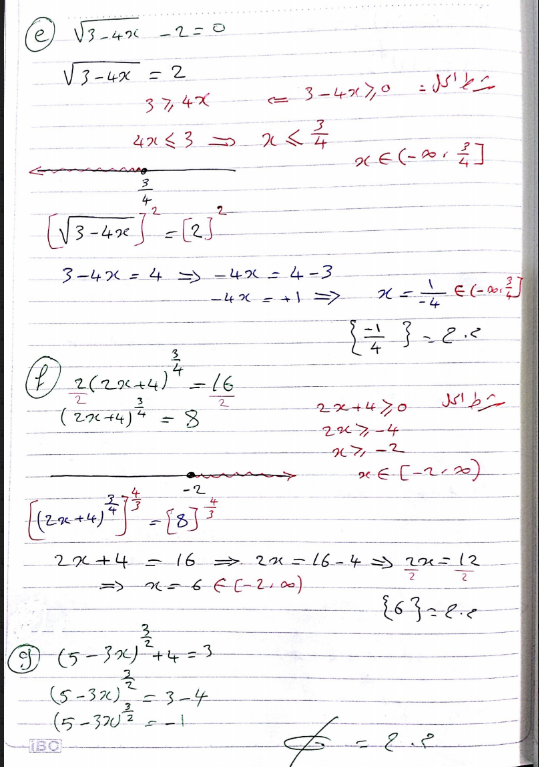 e √(3-4x) - 2 = 0
√(3-4x) = 2
شرط الحل: 3-4x ≥ 0 ⇐ 3 ≥ 4x
4x ≤ 3 ⇒ x ≤ 3/4
x ∈ (-∞, 3/4]
3/4
[√(3-4x)]^2 = [2]^2
3-4x = 4 ⇒ -4x = 4-3
-4x = +1 ⇒ x = 1/-4 ∈ (-∞, 3/4]
{-1/4} = م.ح
f 2(2x+4)^(3/4)/2 = 16/2
(2x+4)^(3/4) = 8
شرط الحل 2x+4 ≥ 0
2x ≥ -4
x ≥ -2
x ∈ [-2, ∞)
-2
[(2x+4)^(3/4)]^(4/3) = [8]^(4/3)
2x+4 = 16 ⇒ 2x = 16-4 ⇒ 2x/2 = 12/2
⇒ x = 6 ∈ [-2, ∞)
{6} = م.ح
g (5-3x)^(3/2) + 4 = 3
(5-3x)^(3/2) = 3-4
(5-3x)^(3/2) = -1
∅ = م.ح
IBC